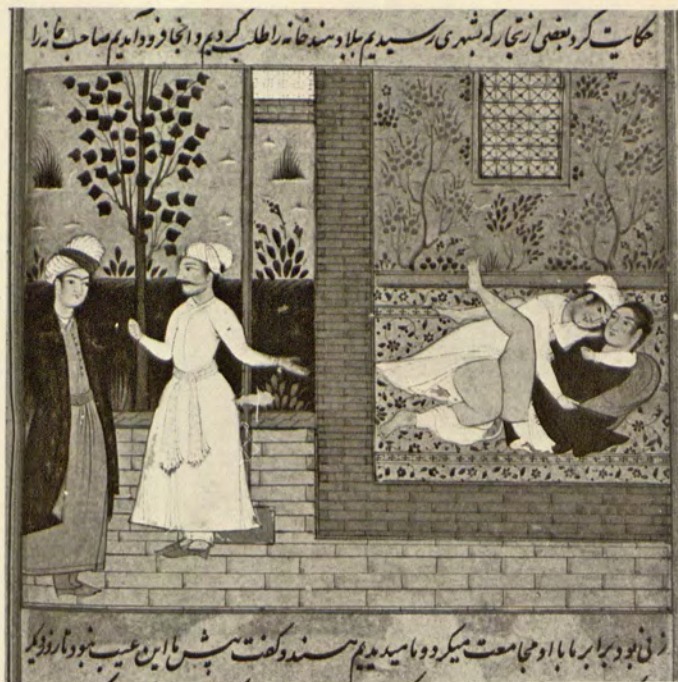 حکایت کرد بعضی از تجار که بشهری رسیدیم ببلاد هند خانه را طلب کردیم و آنجا فرود آمدیم صاحب خانه را
زنی بود برابر ما با او مجامعت میکرد و ما میدیدیم هندو گفت پیش ما این عیب نبود تا روز دیگر